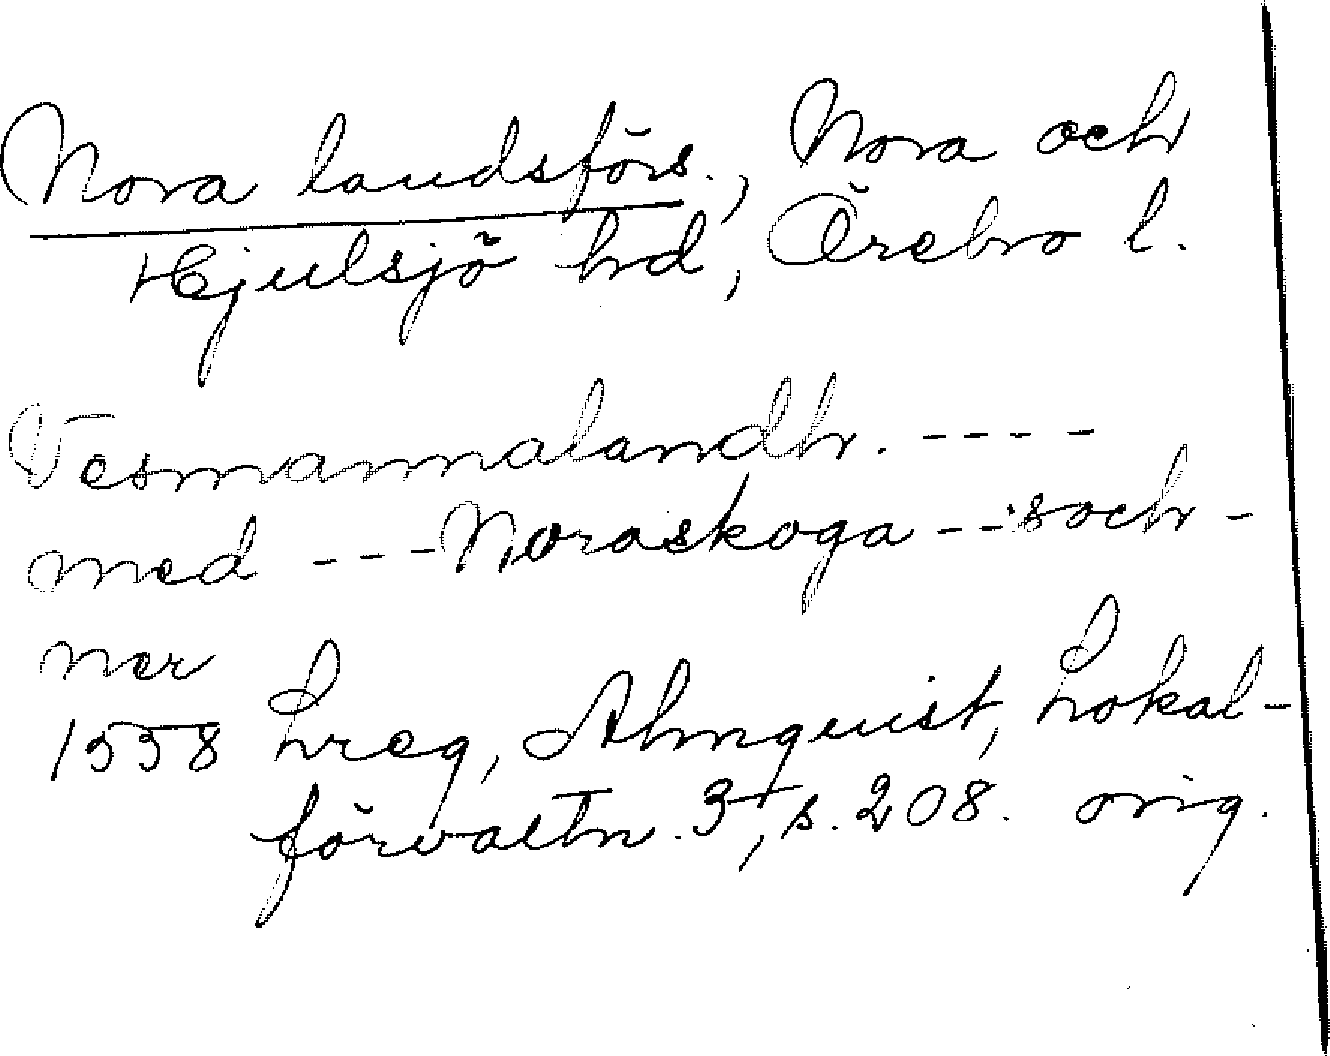 Nora landsförs., Nora och
Hjulsjö hd, Örebro l.
Vesmannalandh. ----
med --- Noraskoga -- soch-
ner
1558 Lreg, Almquist, Lokal-
förvaltn. 3, s. 208. orig.